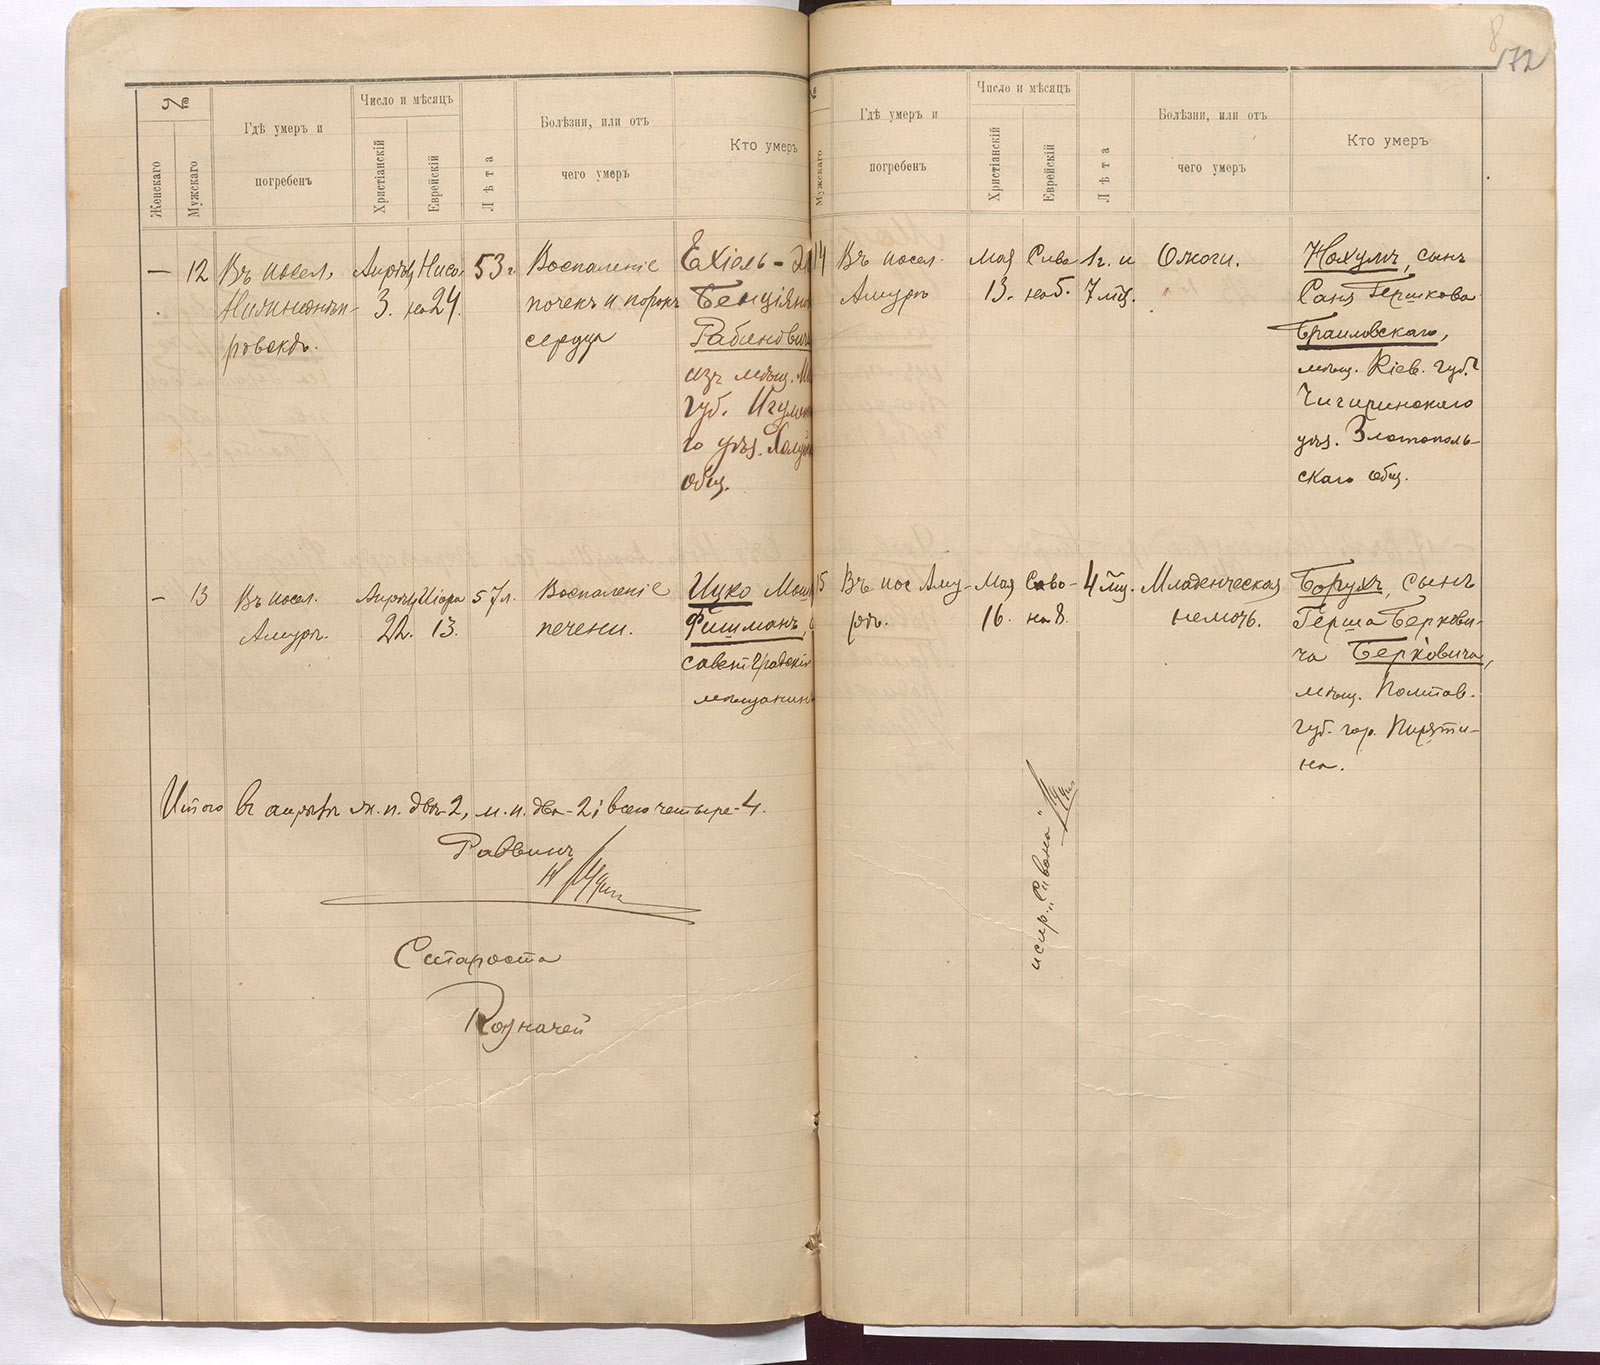 №
Женскаго
Мужскаго
Гдѣ умеръ и
погребенъ
Число и мѣсяцъ
Христіанскій
Еврейскій
Лѣта
Болѣзни, или отъ
чего умеръ
Кто умеръ
— 12
Въ посел.
Нижнеднѣп-
ровскѣ.
Апрѣль
3.
Нисо-
на 24.
53 г.
Воспаленіе
почекъ и порокъ
сердца
Ехіель-
Бенціян
Рабинович
изъ мѣщ.
губ. Игумен
го уѣз.
общ.
— 13
Въ посел.
Амурѣ.
Апрѣль
22.
Іора
13.
57 л.
Воспаленіе
печени.
Ицко Мош
Фишманъ,
саветградскій
мѣщанинъ
Итого въ апрѣлѣ ж. п. двѣ-2, м. п. два-2; всего четыре-4.
Раввинъ
Староста
Казначей
8
172
Мужскаго
Гдѣ умеръ и
погребенъ
Число и мѣсяцъ
Христіанскій
Еврейскій
Лѣта
Болѣзни, или отъ
чего умеръ
Кто умеръ
14
Въ посел.
Амурѣ
Мая
13.
Сиво
на 5.
1 г. и
7 мц.
Ожоги.
Нохумъ, сынъ
Саня Гершкова
Браиловскаго,
мѣщ. Кіев. губ.
Чигиринскаго
уѣз. Златополь-
скаго общ.
15
Въ пос Аму-
рѣ.
Мая
16.
Сиво-
на 8.
4 мц.
Младенческая
немочь.
Борухъ, сынъ
Герша Беркови-
ча Берковича,
мѣщ. Полтав.
губ. гор. Пиряти-
на.
испр. „Сивона"